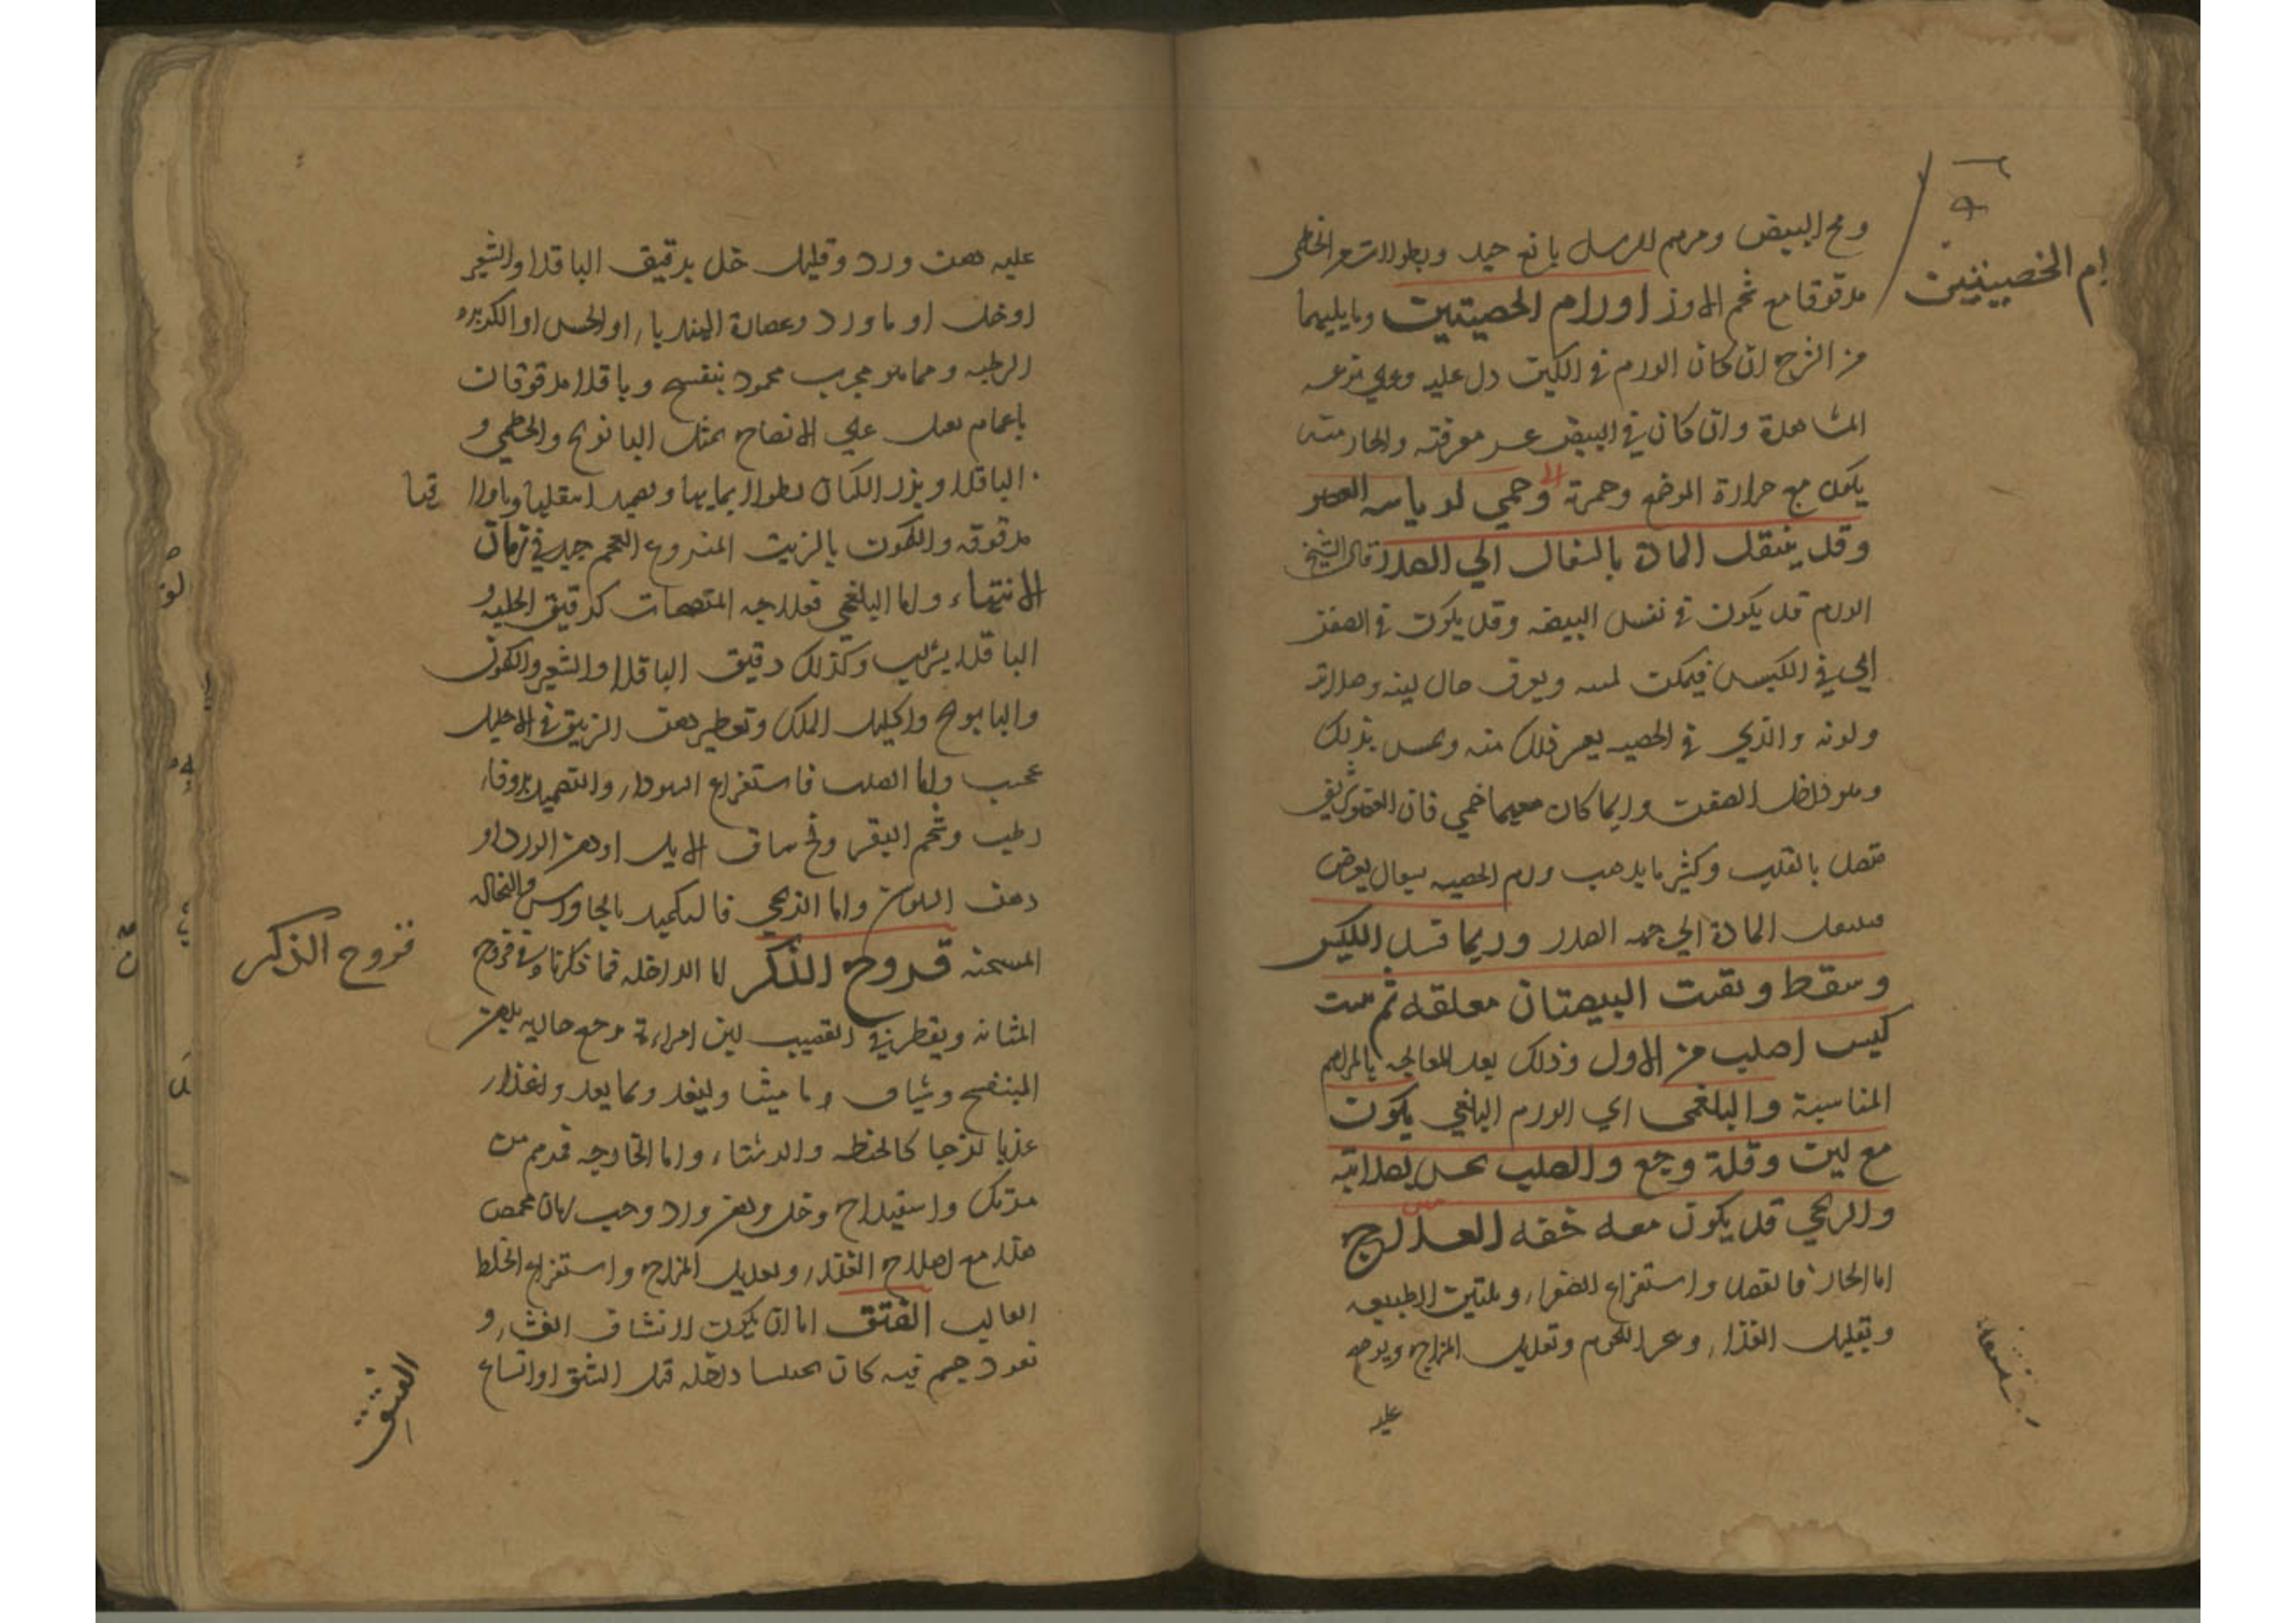 ومح البيض ومرهم الرسل بالغ جيد
مدقوقا مع شحم الاوز اورام الخصيتين وما يليهما
ام الخصيتين
من الشرج ان كان الورم في الكيس دل عليه وعلى نوعه
المشاهدة وان كان في البيض عسر معرفته والحار منه
يكون مع حرارة الموضع وحمرة وحمي
وقد ينتقل المادة بالسعال الي الصدر قال الشيخ
الورم قد يكون في نفس البيضه وقد يكون في الصفن
اي في الكيس فيمكن لمسه ويعرف حال لينه وصلابته
ولونه والذي في الخصيه يعسر ذلك منه ويحس بذلك
وهو داخل الصفن وربما كان معهما حمي فان العضو شريف
متصل بالقلب وكثير ما يذهب ورم الخصيه بسعال يعرض
المادة الي جهه الصدر وربما فسد الكيس
وسقط وبقيت البيضتان معلقه ثم نبت
كيس اصلب من الاول وذلك بعد المعالجه بالمراهم
المناسبة والبلغمي اي الورم البلغمي يكون
مع لين وقلة وجع والصلب يحس بصلابته
والريحي قد يكون معه خفه العلاج
اما الحار فالفصد واستفراغ الصفراء وتليين الطبيعه
وتقليل الغذاء وهجر اللحوم وتعديل المزاج ويوضع
عليه
عليه دهن ورد وقليل خل بدقيق الباقلا او الشعير
او خل او ماورد وعصارة الهندباء او الخس او الكزبره
الرطبه ومما هو مجرب محمود بنفسج وباقلا مدقوقان
على الانضاج بمثل البابونج والخطمي و
الباقلا وبزر الكتان نطولا بمايها
مدقوقه والكمون بالزيت المنزوع العجم جيد في زمان
الانتهاء واما البلغمي فعلاجه المنضجات كدقيق الحلبه و
الباقلا بشراب وكذلك دقيق الباقلا والشعير والكمون
والبابونج واكليل الملك وتقطير دهن الزنبق في الاحليل
عجيب واما الصلب فاستفراغ السوداء والتضميد بزوفاء
رطب وشحم البقر ومخ ساق الايل او دهن الورد او
دهن السوسن واما الريحي فالتكميد بالجاورس والنخاله
المسخنه قروح الذكر اما الداخله فما ذكرنا في قروح
قروح الذكر
المثانه ويقطر في القضيب لبن امراءة مع دهن
البنفسج وشياف ماميثا
غذيا لزجا كالحنطه واما الخارجه فمرهم من
مرتك واسفيداج وخل ودهن ورد وحب رمان محمص
هذا مع اصلاح الغذاء وتعديل المزاج واستفراغ الخلط
الغالب الفتق اما ان يكون لانشقاق الغشاء و
نفوذ جسم فيه كان محتبسا داخله قبل الشق او اتساع
الفتق